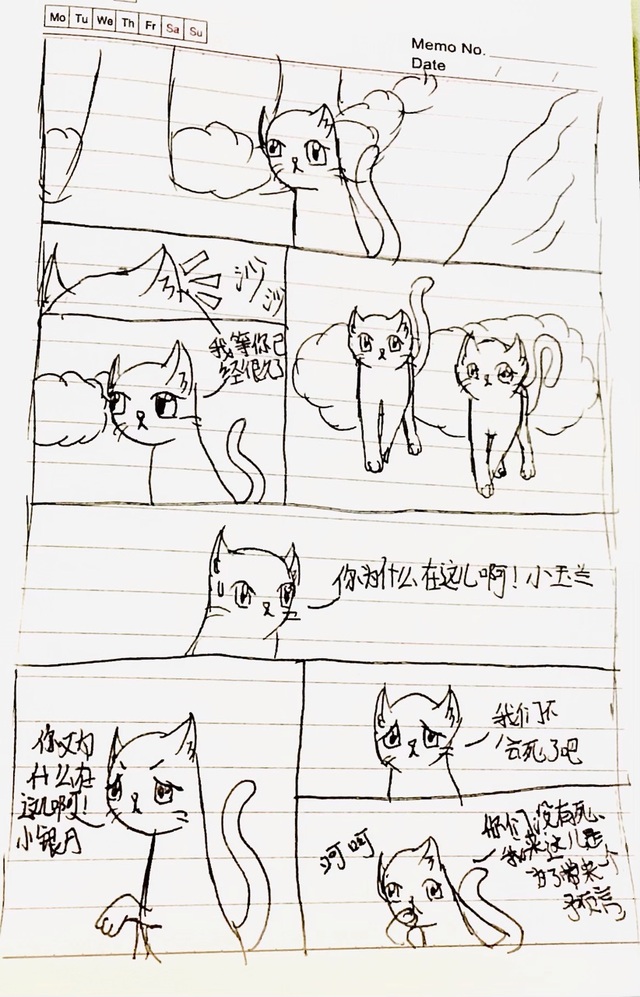 Mo Tu We Th Fr Sa Su
Memo No.
Date
沙沙
我等你已
经很久了
你为什么在这儿啊！小玉兰
你又为
什么在
这儿啊！
小银月
我们不
会死了吧
呵呵
你们没有死、
我来这儿是
为了带来个
预言